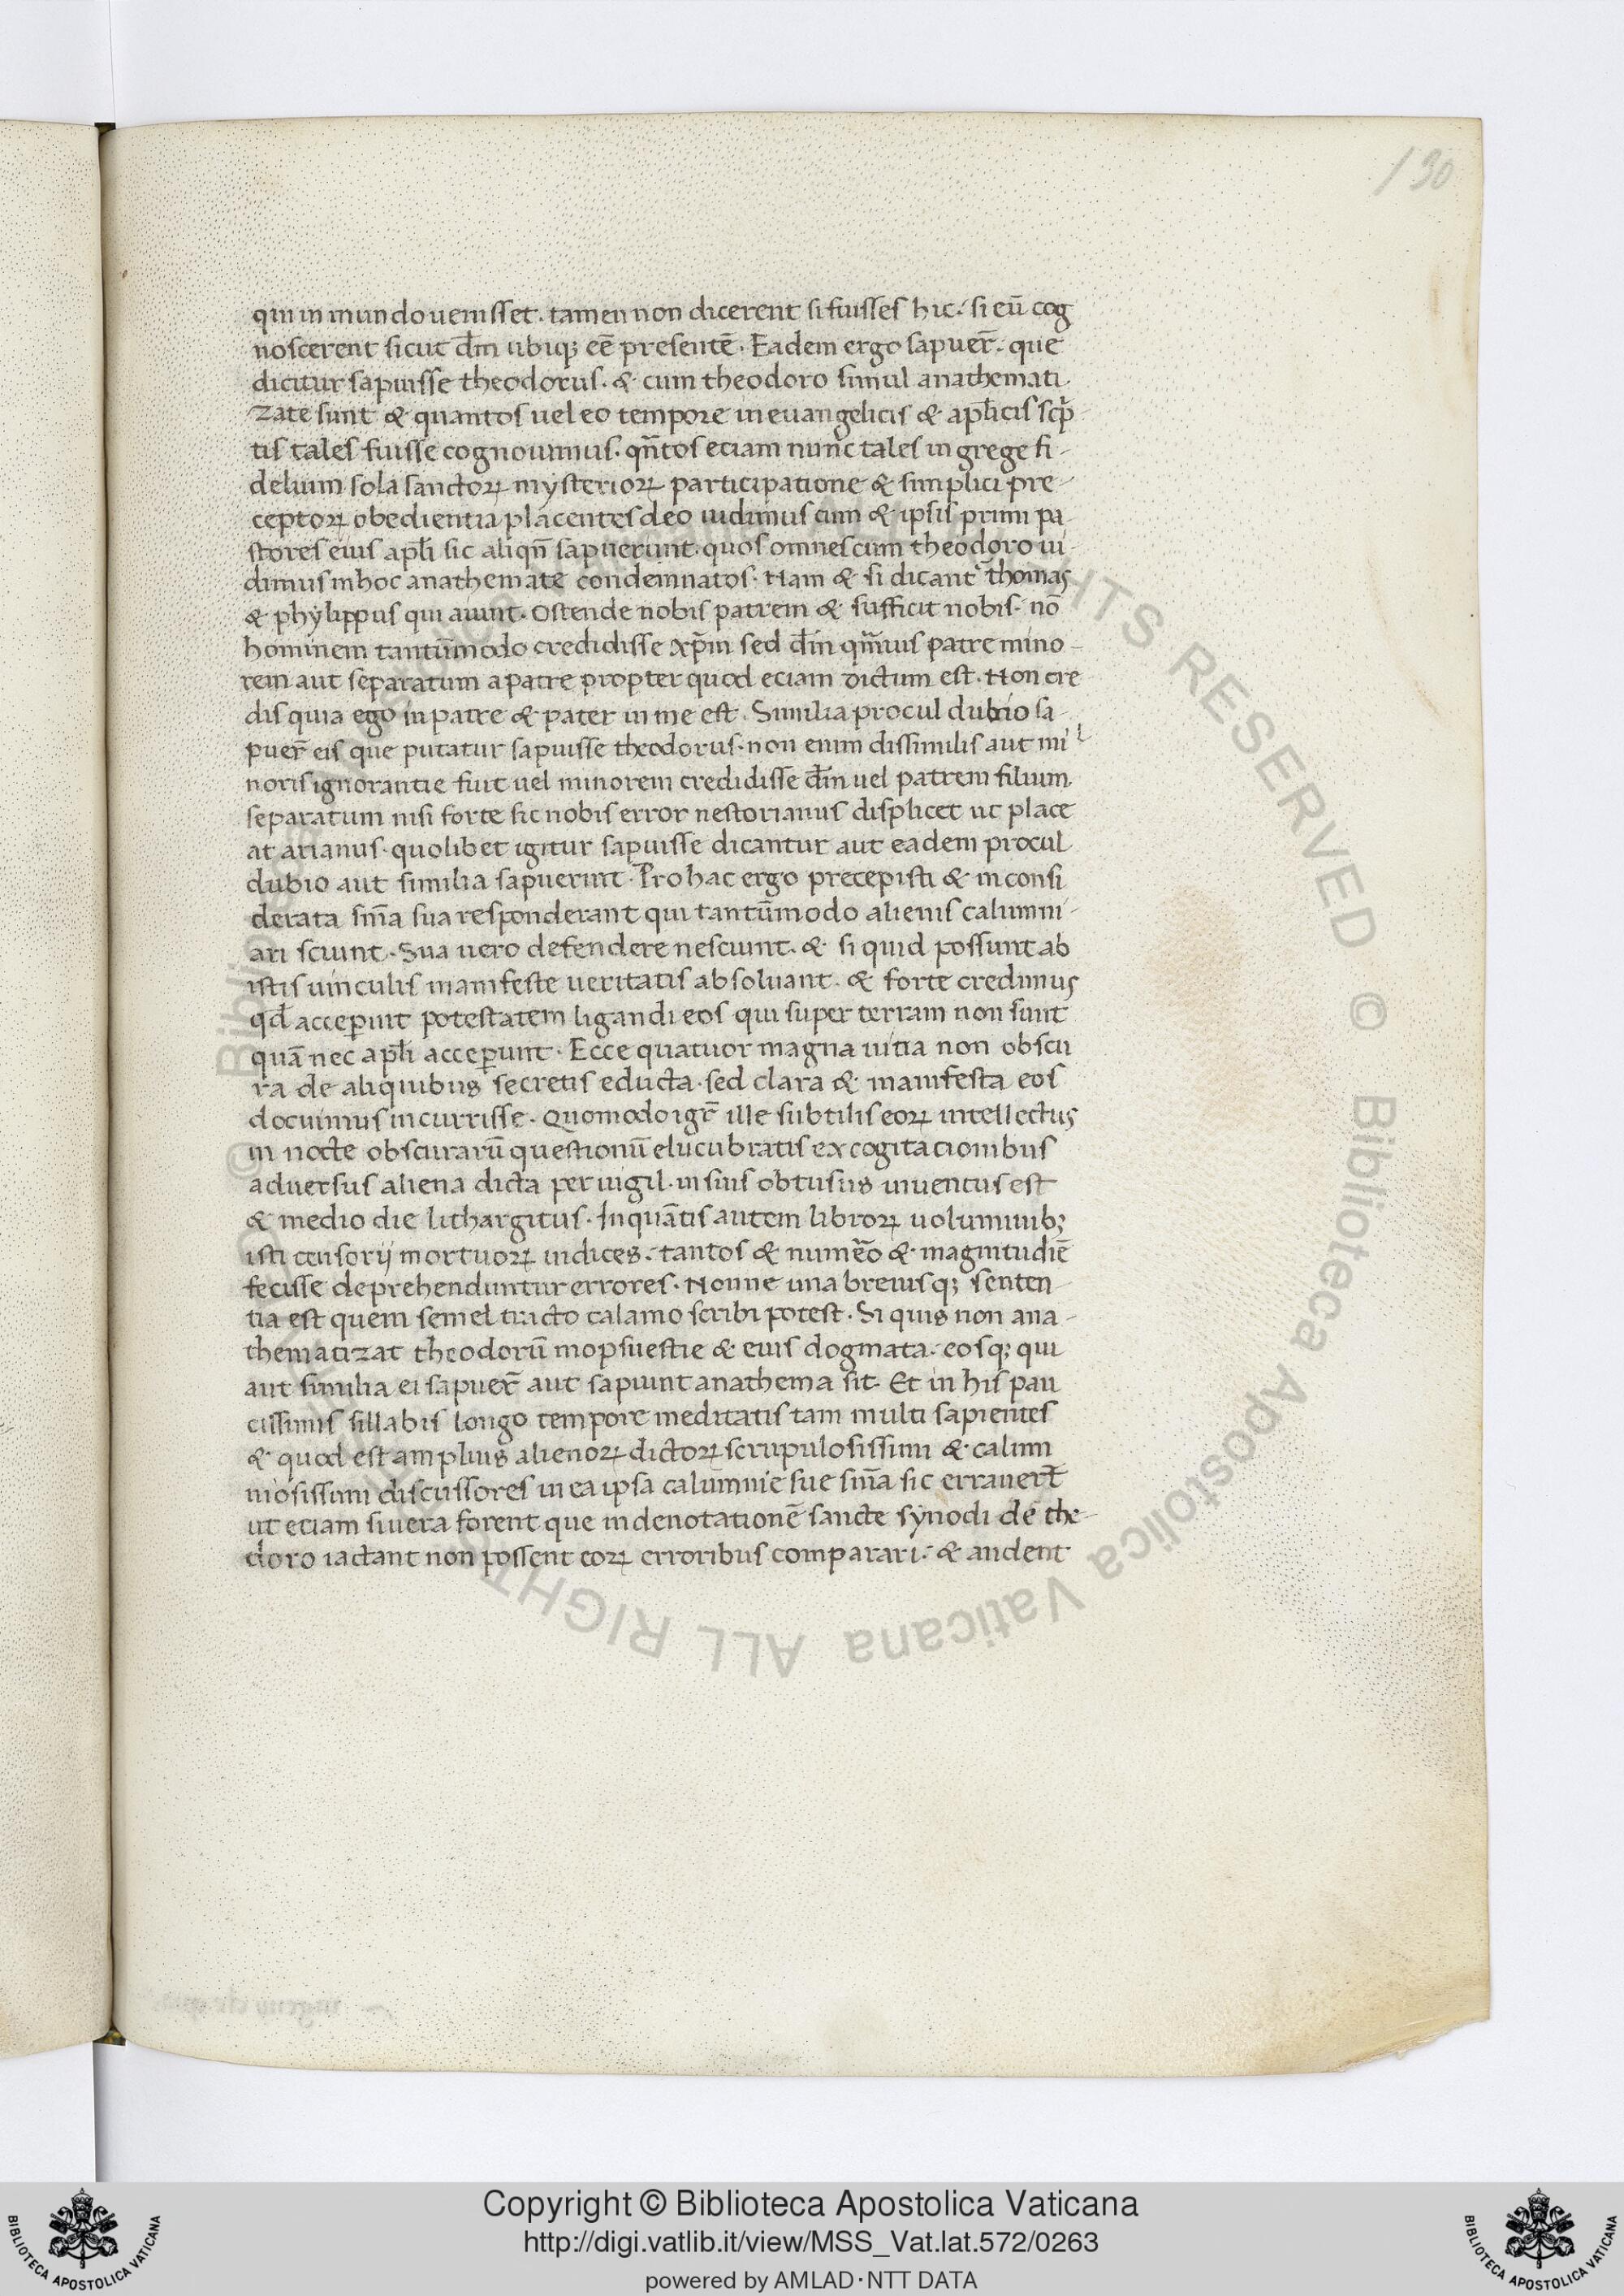 130
qui in mundo uenisset. tamen non dicerent si fuisses hic. si eū cog
noscerent sicut dm̄ ubiqꝫ eē presentē. Eadem ergo sapuer̄. que
dicitur sapuisse theodorus. & cum theodoro simul anathemati
zate sunt & quantos uel eo tempore in euangelicis & ap̄licis sc̄p
tis tales fuisse cognouimus. qn̄tos eciam nunc tales in grege fi-
delium sola sanctoꝝ mysterioꝝ participatione & simplici pre-
ceptoꝝ obedientia placentes deo uidimus cum & ipsis primi pa
stores eius ap̄li sic aliqn̄ sapuerunt. quos omnes cum theodoro ui-
dimus in hoc anathemate condemnatos. Nam & si dicant̄ thomas
& phylippus qui aiunt. Ostende nobis patrem & sufficit nobis. nō
hominem tantūmodo credidisse xp̄m sed dm̄ qm̄uis patre mino-
rem aut separatum a patre propter quod eciam dictum est. Non cre
dis quia ego in patre & pater in me est. Similia procul dubio sa-
puer̄ eis que putatur sapuisse theodorus. non enim dissimilis aut mi
noris ignorantie fuit uel minorem credidisse dm̄ uel patrem filium
separatum nisi forte sic nobis error nestorianus displicet ut place
at arianus. quolibet igitur sapuisse dicantur aut eadem procul
dubio aut similia sapuerunt. Pro hac ergo precepisti & inconsi
derata sn̄ia sua responderant qui tantūmodo alienis calumni-
ari sciunt. Sua uero defendere nesciunt. & si quid possunt ab
istis uinculis manifeste ueritatis absoluant. & forte credimus
qd̄ acceꝑint potestatem ligandi eos qui super terram non sunt
quā nec ap̄li acceꝑunt. Ecce quatuor magna uitia non obscu
ra de aliquibus secretis educta. sed clara & manifesta eos
docuimus incurrisse. Quomodo igr̄ ille subtilis eoꝝ intellectus
in nocte obscurarū questionū elucubratis excogitacionibus
aduersus aliena dicta peruigil. in suis obtusus inuentus est
& medio die lithargitus. In quātis autem libroꝝ uoluminibꝫ
isti censorij mortuoꝝ iudices. tantos & numeͣo & magnitudiē
fecisse deprehenduntur errores. Nonne una breuisqꝫ senten-
tia est quem semel tracto calamo scribi potest. Si quis non ana-
thematizat theodorū mopsuestie & eius dogmata. eosqꝫ qui
aut similia ei sapuer̄ aut sapiunt anathema sit. Et in his pau
cissimis sillabis longo tempore meditatis tam multi sapientes
& quod est amplius alienoꝝ dictoꝝ scrupulosissimi & calum
niosissimi discussores in ea ipsa calumnie sue sn̄ia sic errauer̄t
ut eciam si uera forent que in denotationē sancte synodi de the-
doro iactant non possent eoꝝ erroribus comparari. & audent
© Biblioteca Apostolica Vaticana ALL RIGHTS RESERVED
Copyright © Biblioteca Apostolica Vaticana
http://digi.vatlib.it/view/MSS_Vat.lat.572/0263
powered by AMLAD·NTT DATA
BIBLIOTECA APOSTOLICA VATICANA
BIBLIOTECA APOSTOLICA VATICANA